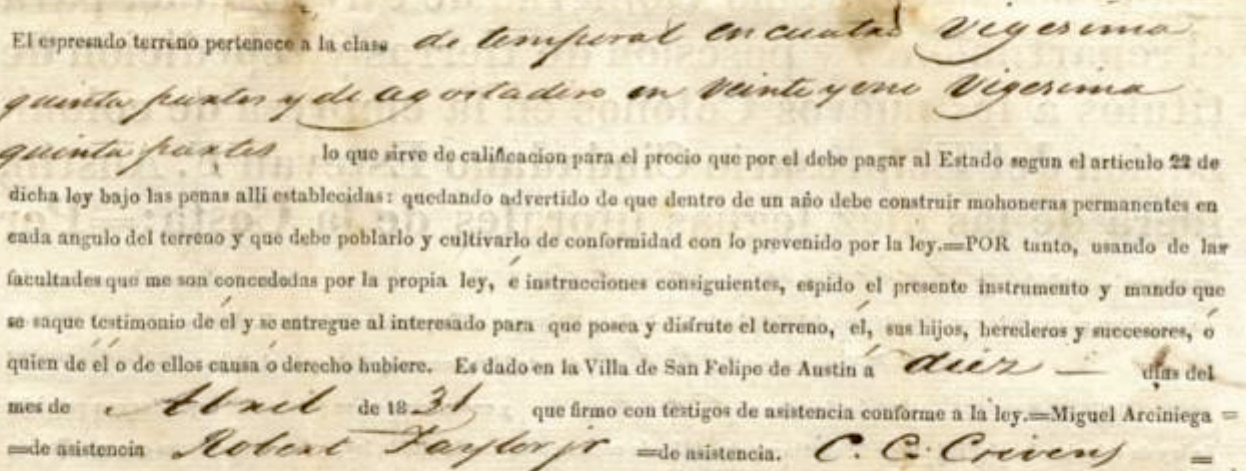 El espresado terreno pertenece à la clase de temporal en cuatro Vigesima
quinta partes y de agostadero en veinte y una Vigesima
quinta partes lo que sirve de calificacion para el precio que por el debe pagar al Estado segun el articulo 22 de
dicha ley bajo las penas alli establecidas: quedando advertido de que dentro de un año debe construir mohoneras permanentes en
cada angulo del terreno y que debe poblarlo y cultivarlo de conformidad con lo prevenido por la ley.=POR tanto, usando de las
facultades que me son concedadas por la propia ley, é instrucciones consiguientes, espido el presente instrumento y mando que
se saque testimonio de él y se entregue al interesado para que posea y disfrute el terreno, él, sus hijos, herederos y succesores, ó
quien de él o de ellos causa ó derecho hubiere. Es dado en la Villa de San Felipe de Austin á diez — dias del
mes de Abril de 1831 que firmo con testigos de asistencia conforme a la ley.=Miguel Arciniega =
=de asistencia Robert Taylor jr =de asistencia. C. C. Crivens =